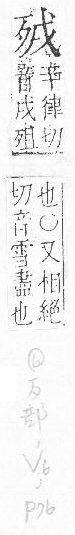 辛律切
音戌殂
也○又相絕
切音雪盡也
歹部, V6, p76